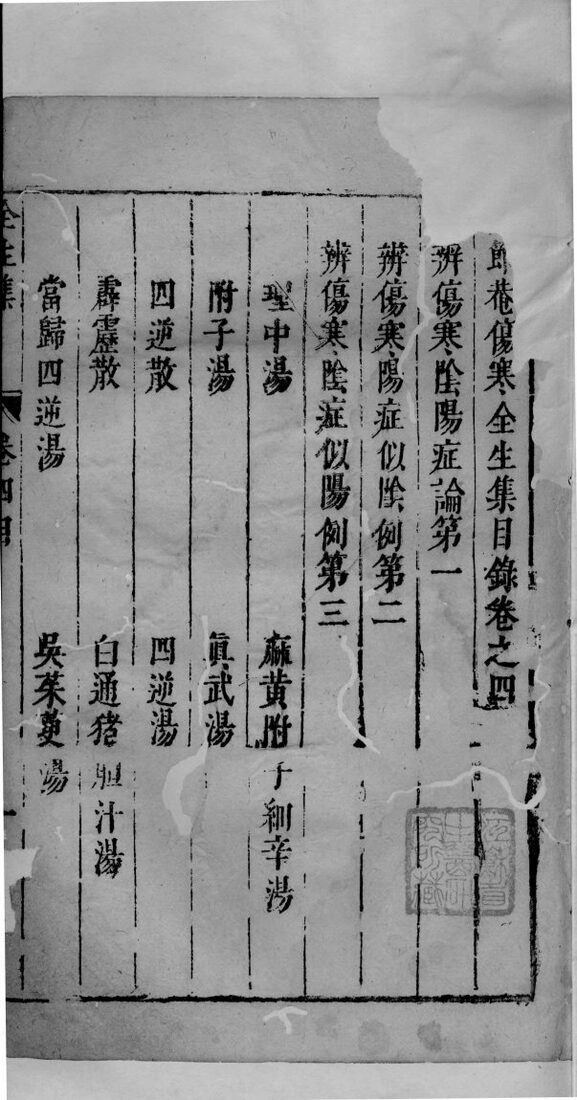 節菴傷寒全生集目錄卷之四
辨傷寒陰陽症論第一
辨傷寒陽症似陰例第二
辨傷寒陰症似陽例第三
理中湯 麻黃附子細辛湯
附子湯 眞武湯
四逆散 四逆湯
霹靂散 白通猪胆汁湯
當歸四逆湯 吳茱萸湯
全生集 卷四目 一